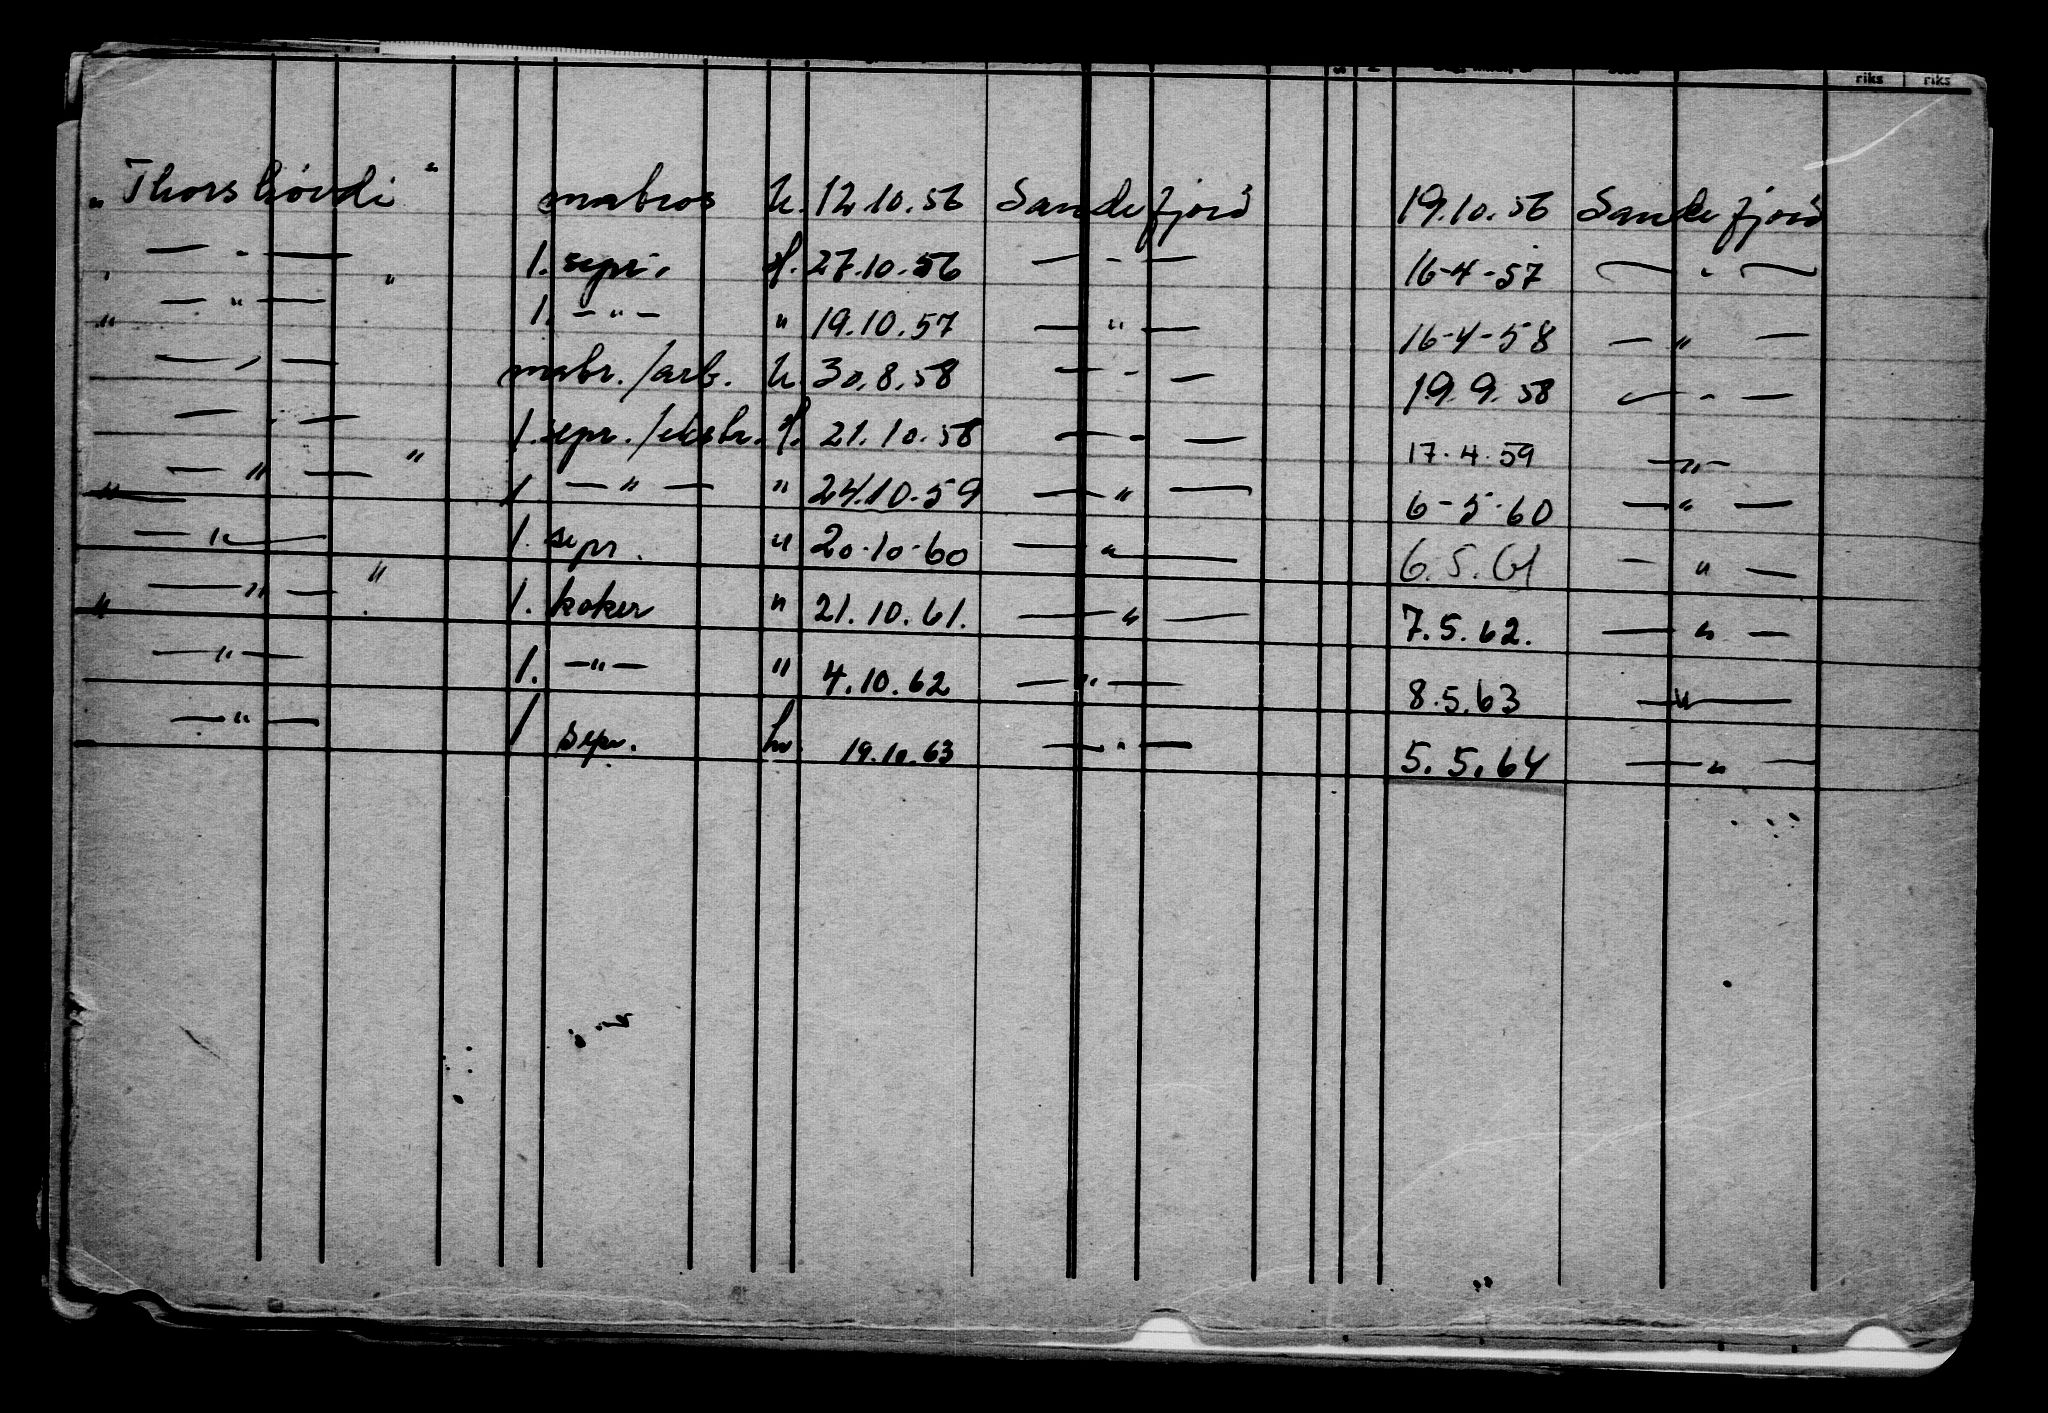 riks riks
„Thorshövdi" matros U. 12.10.56 Sandefjord 19.10.56 Sandefjord
— " — 1. sepr. H. 27.10.56 — " — 16-4-57 — " —
— " — 1. — " — " 19.10.57 — " — 16-4-58 — " —
— " — matr./arb. U. 30.8.58 — " — 19.9.58 — " —
— " — 1. sepr./ekstr. H. 21.10.58 — " — 17.4.59 — " —
— " — 1. — " — " 24.10.59 — " — 6-5-60 — " —
— " — 1. sepr. " 20-10-60 — " — 6.5.61 — " —
— " — 1. koker " 21.10.61. — " — 7.5.62. — " —
— " — 1. — " — " 4.10.62 — " — 8.5.63 — " —
— " — 1 sepr. hv. 19.10.63 — " — 5.5.64 — " —